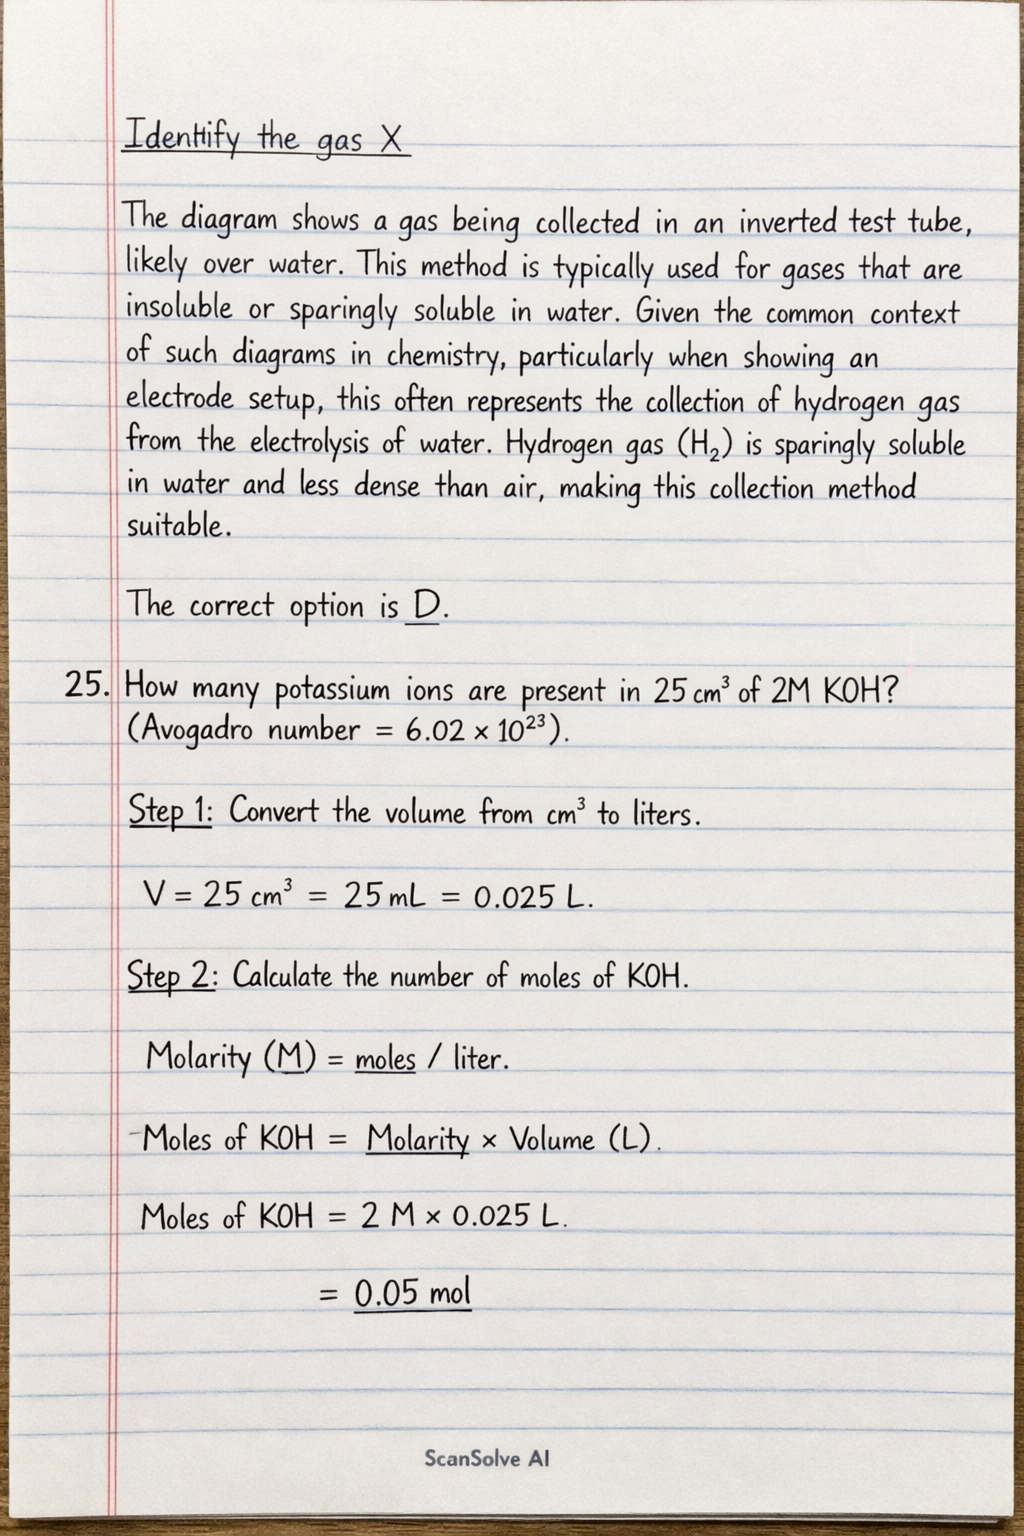 Identify the gas X
The diagram shows a gas being collected in an inverted test tube,
likely over water. This method is typically used for gases that are
insoluble or sparingly soluble in water. Given the common context
of such diagrams in chemistry, particularly when showing an
electrode setup, this often represents the collection of hydrogen gas
from the electrolysis of water. Hydrogen gas (H₂) is sparingly soluble
in water and less dense than air, making this collection method
suitable.
The correct option is D.
25. How many potassium ions are present in 25 cm³ of 2M KOH?
(Avogadro number = 6.02 × 10²³).
Step 1: Convert the volume from cm³ to liters.
V = 25 cm³ = 25 mL = 0.025 L.
Step 2: Calculate the number of moles of KOH.
Molarity (M) = moles / liter.
-Moles of KOH = Molarity × Volume (L).
Moles of KOH = 2 M × 0.025 L.
= 0.05 mol
ScanSolve AI